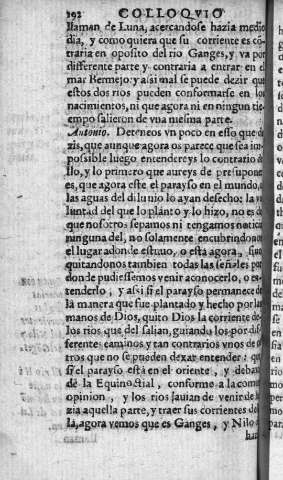 192 COLLOQVIO
llaman de Luna, acercandose hazia medio
dia, y como quiera que su corriente es cõ
traria en oposito del rio Ganges, y va por
differente parte y contraria a entrar en el
mar Bermejo, y asi mal se puede dezir que
estos dos rios pueden conformarse en los
nacimientos, ni que agora ni en ningun tie-
empo salieron de vna mesma parte.
Antonio. Deteneos vn poco en esso que de
zis, que aunque agora os parece que sea im-
possible luego entendereys lo contrario de
llo, y lo primero que aureys de presupone
es, que agora este el parayso en el mundo, o
las aguas del diluuio lo ayan desecho; la vo
luntad del que lo planto y lo hizo, no es de
que nosotros sepamos ni tengamos noticia
ninguna del, no solamente encubriendonos
el lugar adonde estuuo, o està agora, sino
quitandonos tambien todas las señales por
don de pudiessemos venir a conocerlo, o en-
tenderlo, y assi si el parayso permanece de
la manera que fue plantado y hecho por las
manos de Dios, quito Dios la corriente de
los rios que del salian, guiandolos por dif
ferentes caminos y tan contrarios vnos de o
tros que no se pueden dexar entender: que
si el parayso està en el oriente, y debaxo
de la Equinoctial, conforme a la comun
opinion, y los rios hauian de venir de ha
zia aquella parte, y traer sus corrientes de
la, agora vemos que es Ganges, y Nilo a